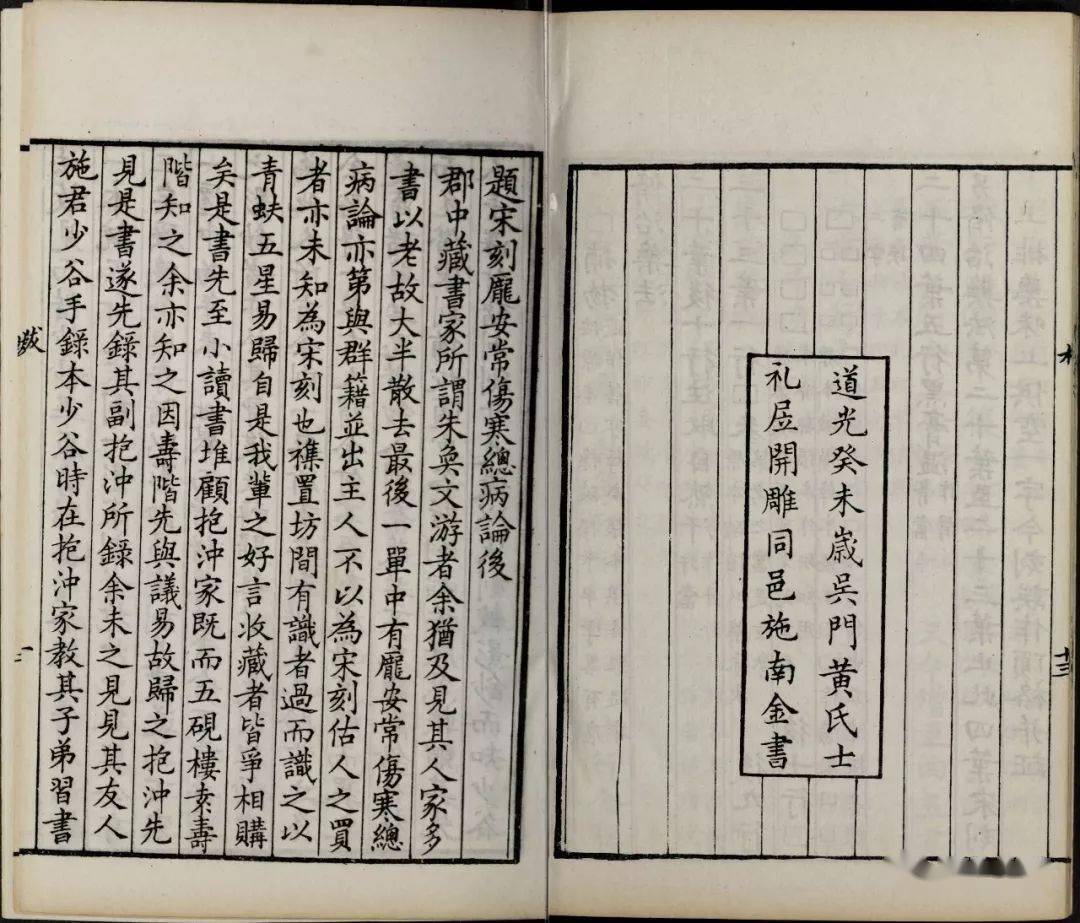 道光癸未歲吳門黃氏士
礼居開雕同邑施南金書
題宋刻龐安常傷寒總病論後
郡中藏書家所謂朱奐文游者余猶及見其人家多
書以老故大半散去最後一單中有龐安常傷寒總
病論亦第與群籍並出主人不以為宋刻估人之買
者亦未知為宋刻也襍置坊間有識者過而識之以
青蚨五星易歸自是我輩之好言收藏者皆爭相購
矣是書先至小讀書堆顧抱沖家既而五硯樓袁壽
階知之余亦知之因壽階先與議易故歸之抱沖先
見是書遂先錄其副抱沖所錄余未之見見其友人
施君少谷手錄本少谷時在抱沖家教其子弟習書
跋
一